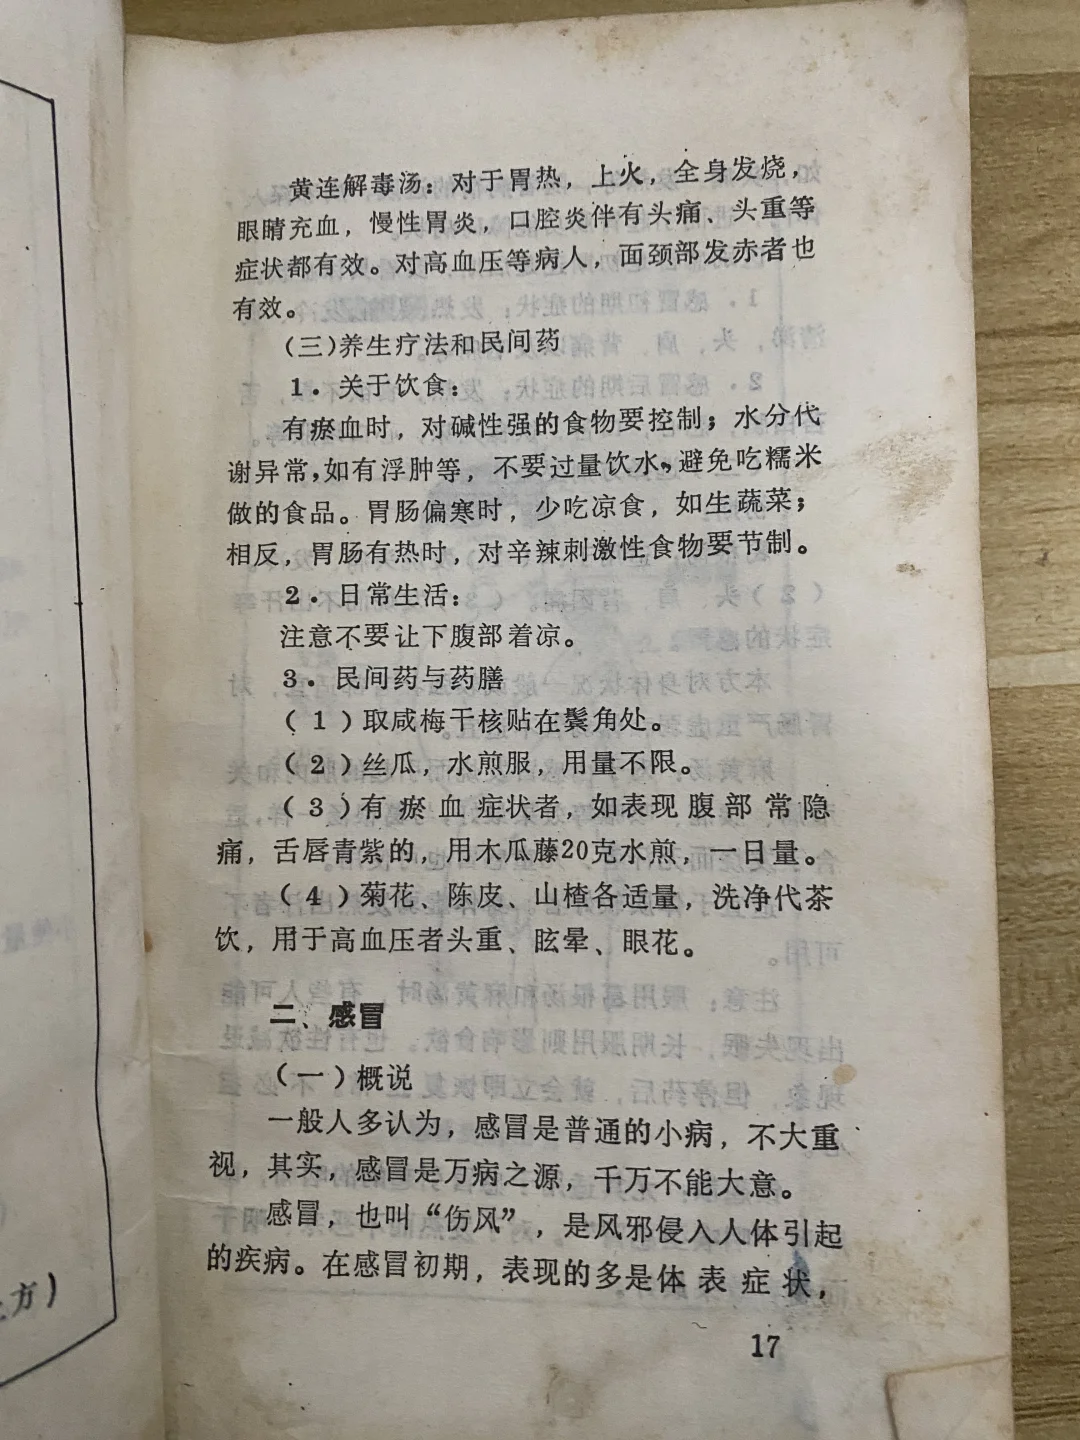 黄连解毒汤：对于胃热，上火，全身发烧，
眼睛充血，慢性胃炎，口腔炎伴有头痛、头重等
症状都有效。对高血压等病人，面颈部发赤者也
有效。
（三）养生疗法和民间药
1．关于饮食：
有瘀血时，对碱性强的食物要控制；水分代
谢异常，如有浮肿等，不要过量饮水，避免吃糯米
做的食品。胃肠偏寒时，少吃凉食，如生蔬菜；
相反，胃肠有热时，对辛辣刺激性食物要节制。
2．日常生活：
注意不要让下腹部着凉。
3．民间药与药膳
（1）取咸梅干核贴在鬓角处。
（2）丝瓜，水煎服，用量不限。
（3）有瘀血症状者，如表现腹部常隐
痛，舌唇青紫的，用木瓜藤20克水煎，一日量。
（4）菊花、陈皮、山楂各适量，洗净代茶
饮，用于高血压者头重、眩晕、眼花。
二、感冒
（一）概说
一般人多认为，感冒是普通的小病，不大重
视，其实，感冒是万病之源，千万不能大意。
感冒，也叫“伤风”，是风邪侵入人体引起
的疾病。在感冒初期，表现的多是体表症状，
17
方）